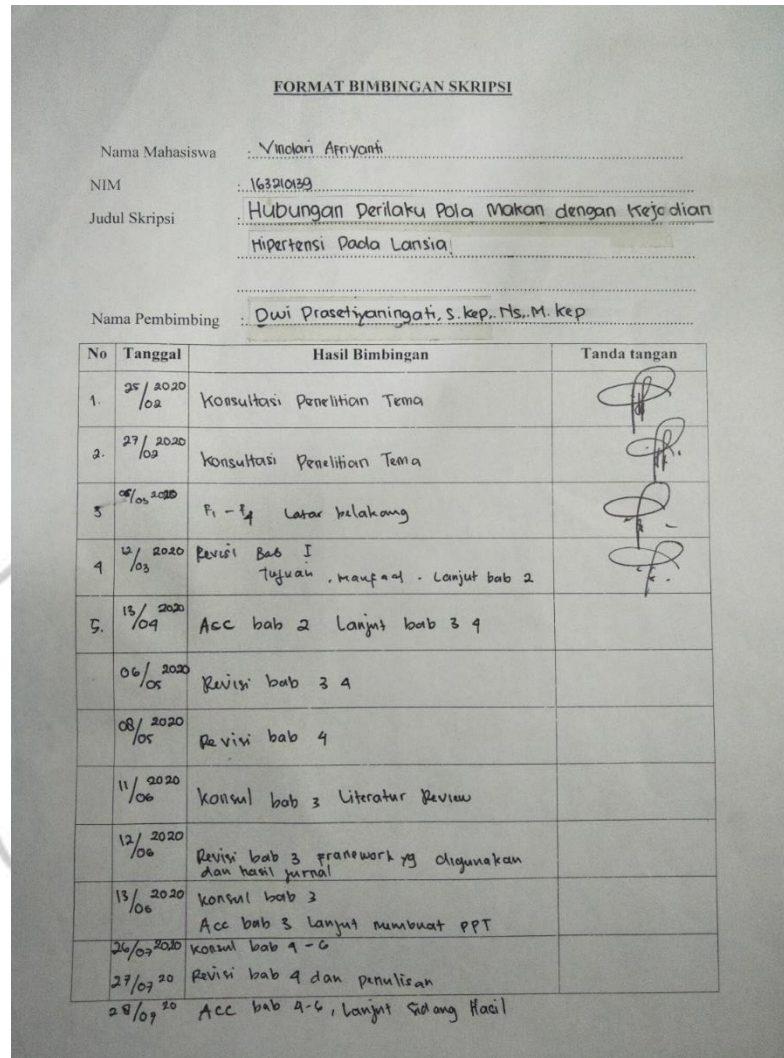 FORMAT BIMBINGAN SKRIPSI
Nama Mahasiswa : Vindari Afriyanti
NIM : 163210139
Judul Skripsi : Hubungan Perilaku Pola Makan dengan Kejadian
Hipertensi Pada Lansia
Nama Pembimbing : Dwi Prasetiyaningati, S.kep,. Ns,. M. kep
No Tanggal Hasil Bimbingan Tanda tangan
1. 25/02 2020 Konsultasi Penelitian Tema
2. 27/02 2020 Konsultasi Penelitian Tema
3 /03 2020 Latar belakang
4 12/03 2020 Revisi Bab I
Tujuan, manfaat. Lanjut bab 2
5. 13/04 2020 Acc bab 2 Lanjut bab 3 4
06/05 2020 Revisi bab 3 4
08/05 2020 Revisi bab 4
11/06 2020 Konsul bab 3 Literatur Review
12/06 2020 Revisi bab 3 framework yg digunakan
dan hasil jurnal
13/06 2020 Konsul bab 3
Acc bab 3 Lanjut membuat PPT
26/07 2020 Konsul bab 4 - 6
27/07 20 Revisi bab 4 dan penulisan
28/07 20 Acc bab 4-6, Lanjut Sidang Hasil